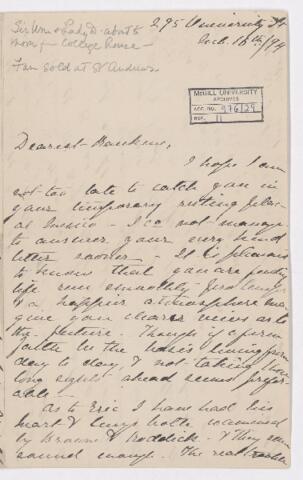 Sir Wm & Lady D. about to
move fr College house -
Fan sold at St Andrews
295 University St
Feb. 16th/94
McGILL UNIVERSITY
ARCHIVES
ACC. NO. 976/29
REF. 11
Dearest
I hope I am
not too late to catch you in
your temporary resting place
at - I cd not manage
to answer your very kind
letter sooner - It is pleasant
to know that you are finding
life run smoothly &
a happier atmosphere may
give you clearer views as to
the future. Though if a firm
faith be the basis living from
day to day, & not taking
long ahead seems prefer-
able -
As to Eric I have had his
heart & lungs both examined
by Browne & Roddick - & they seem
sound enough. The real trouble